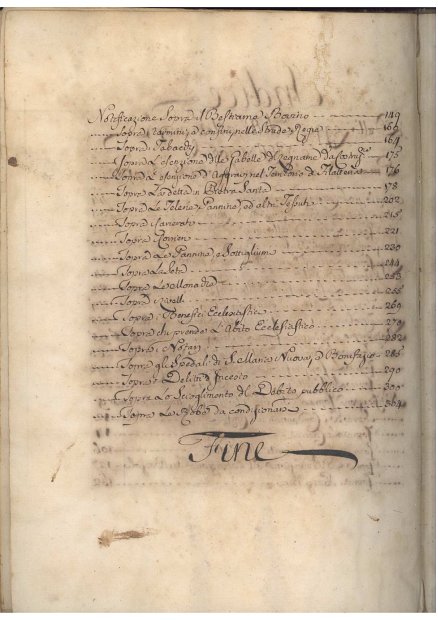 Notificazione Sopra il Bestiame Bovino 149
Sopra i termini, e confini, nelle Strade Regie 165
Sopra i Tabacchi 167
Sopra L'esenzione delle Gabelle 175
Sopra L'esenzione d'Aggravj nel Territorio di 176
Sopra La detta in Pietra Santa 178
Sopra Le Telerie, Pannine, ed altri Tessuti 202
Sopra i 215
Sopra 221
Sopra Le Pannine, e 230
Sopra La Seta 244
Sopra 253
Sopra i 255
Sopra i Benefici Ecclesiastici 269
Sopra chi prende L'Abito Ecclesiastico 279
Sopra i Notari 282
Sopra gli Spedali di S. Maria Nuova, e Bonifazio 285
Sopra i Delitti d'Incesto 290
Sopra Lo Scioglimento del Debito pubblico 300
Sopra Le Robe da condizionare 304
Fine